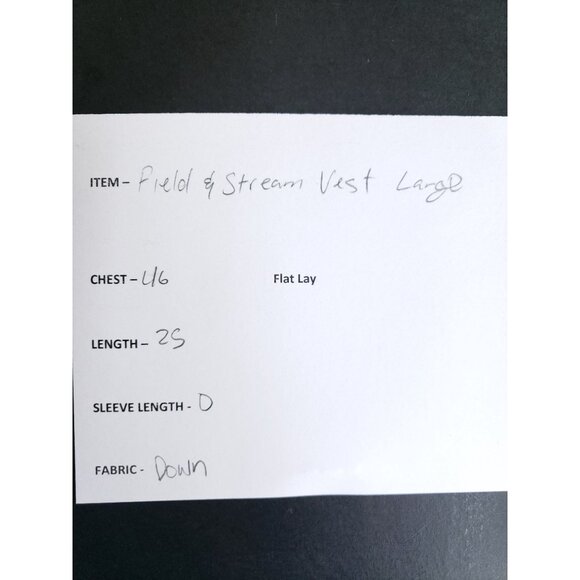 ITEM – Field & Stream Vest Large
CHEST – 46 Flat Lay
LENGTH – 25
SLEEVE LENGTH - 0
FABRIC - Down